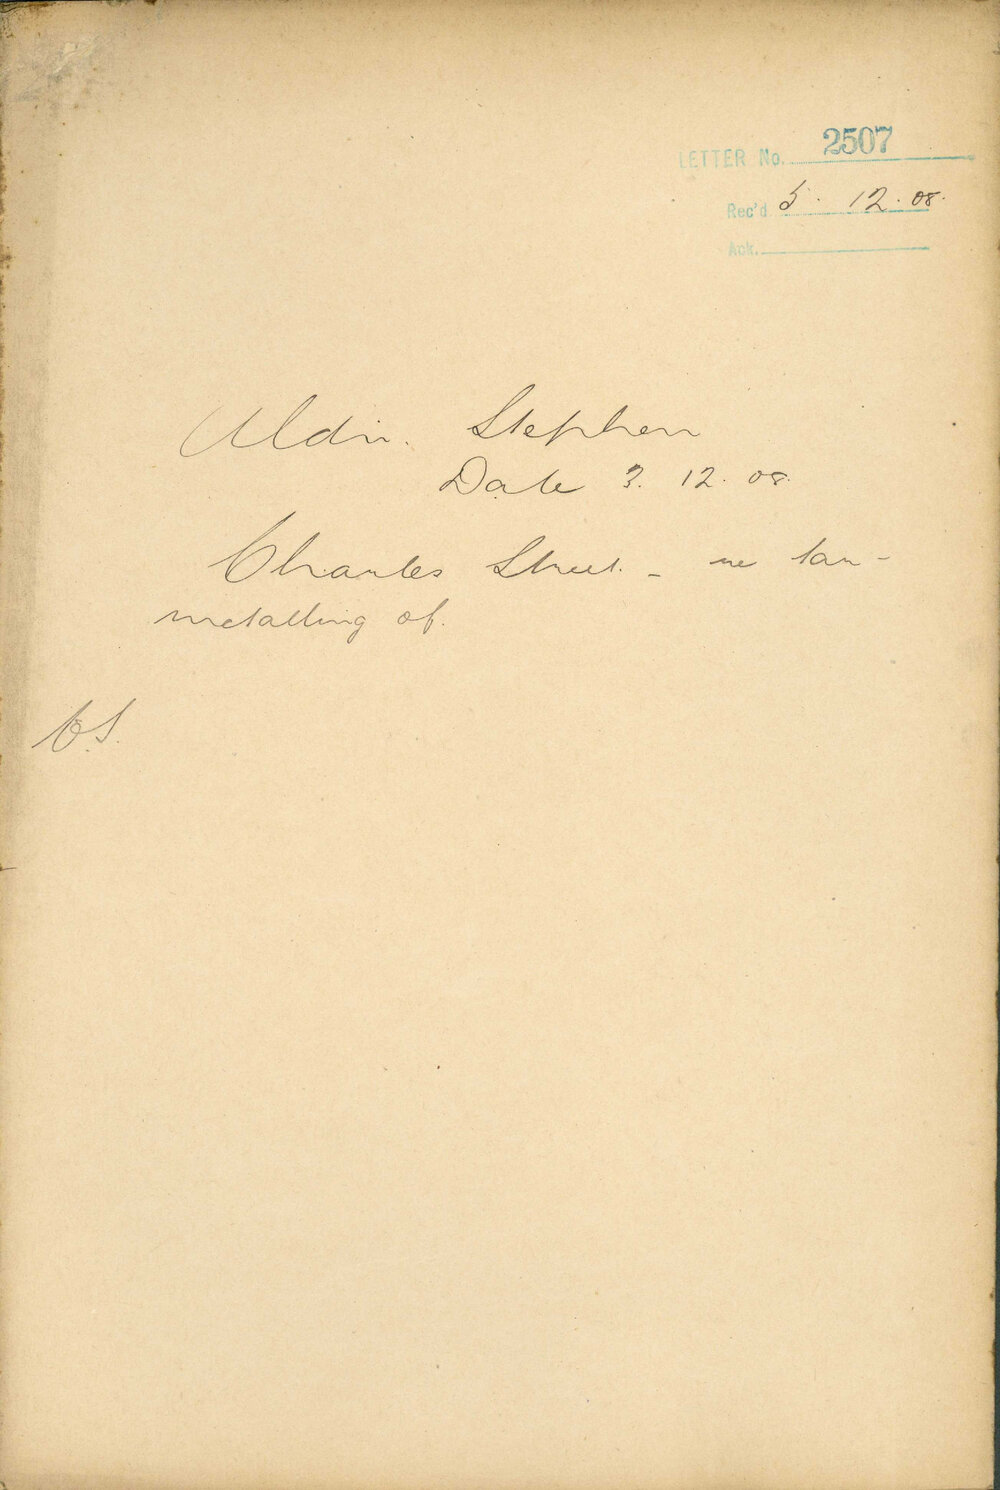 LETTER No. 2507
Rec'd 5. 12. 08.
Ack.
Aldn. Stephen
Date 3. 12. 08.
Charles Street. - re tar-
metalling of.
C.S.